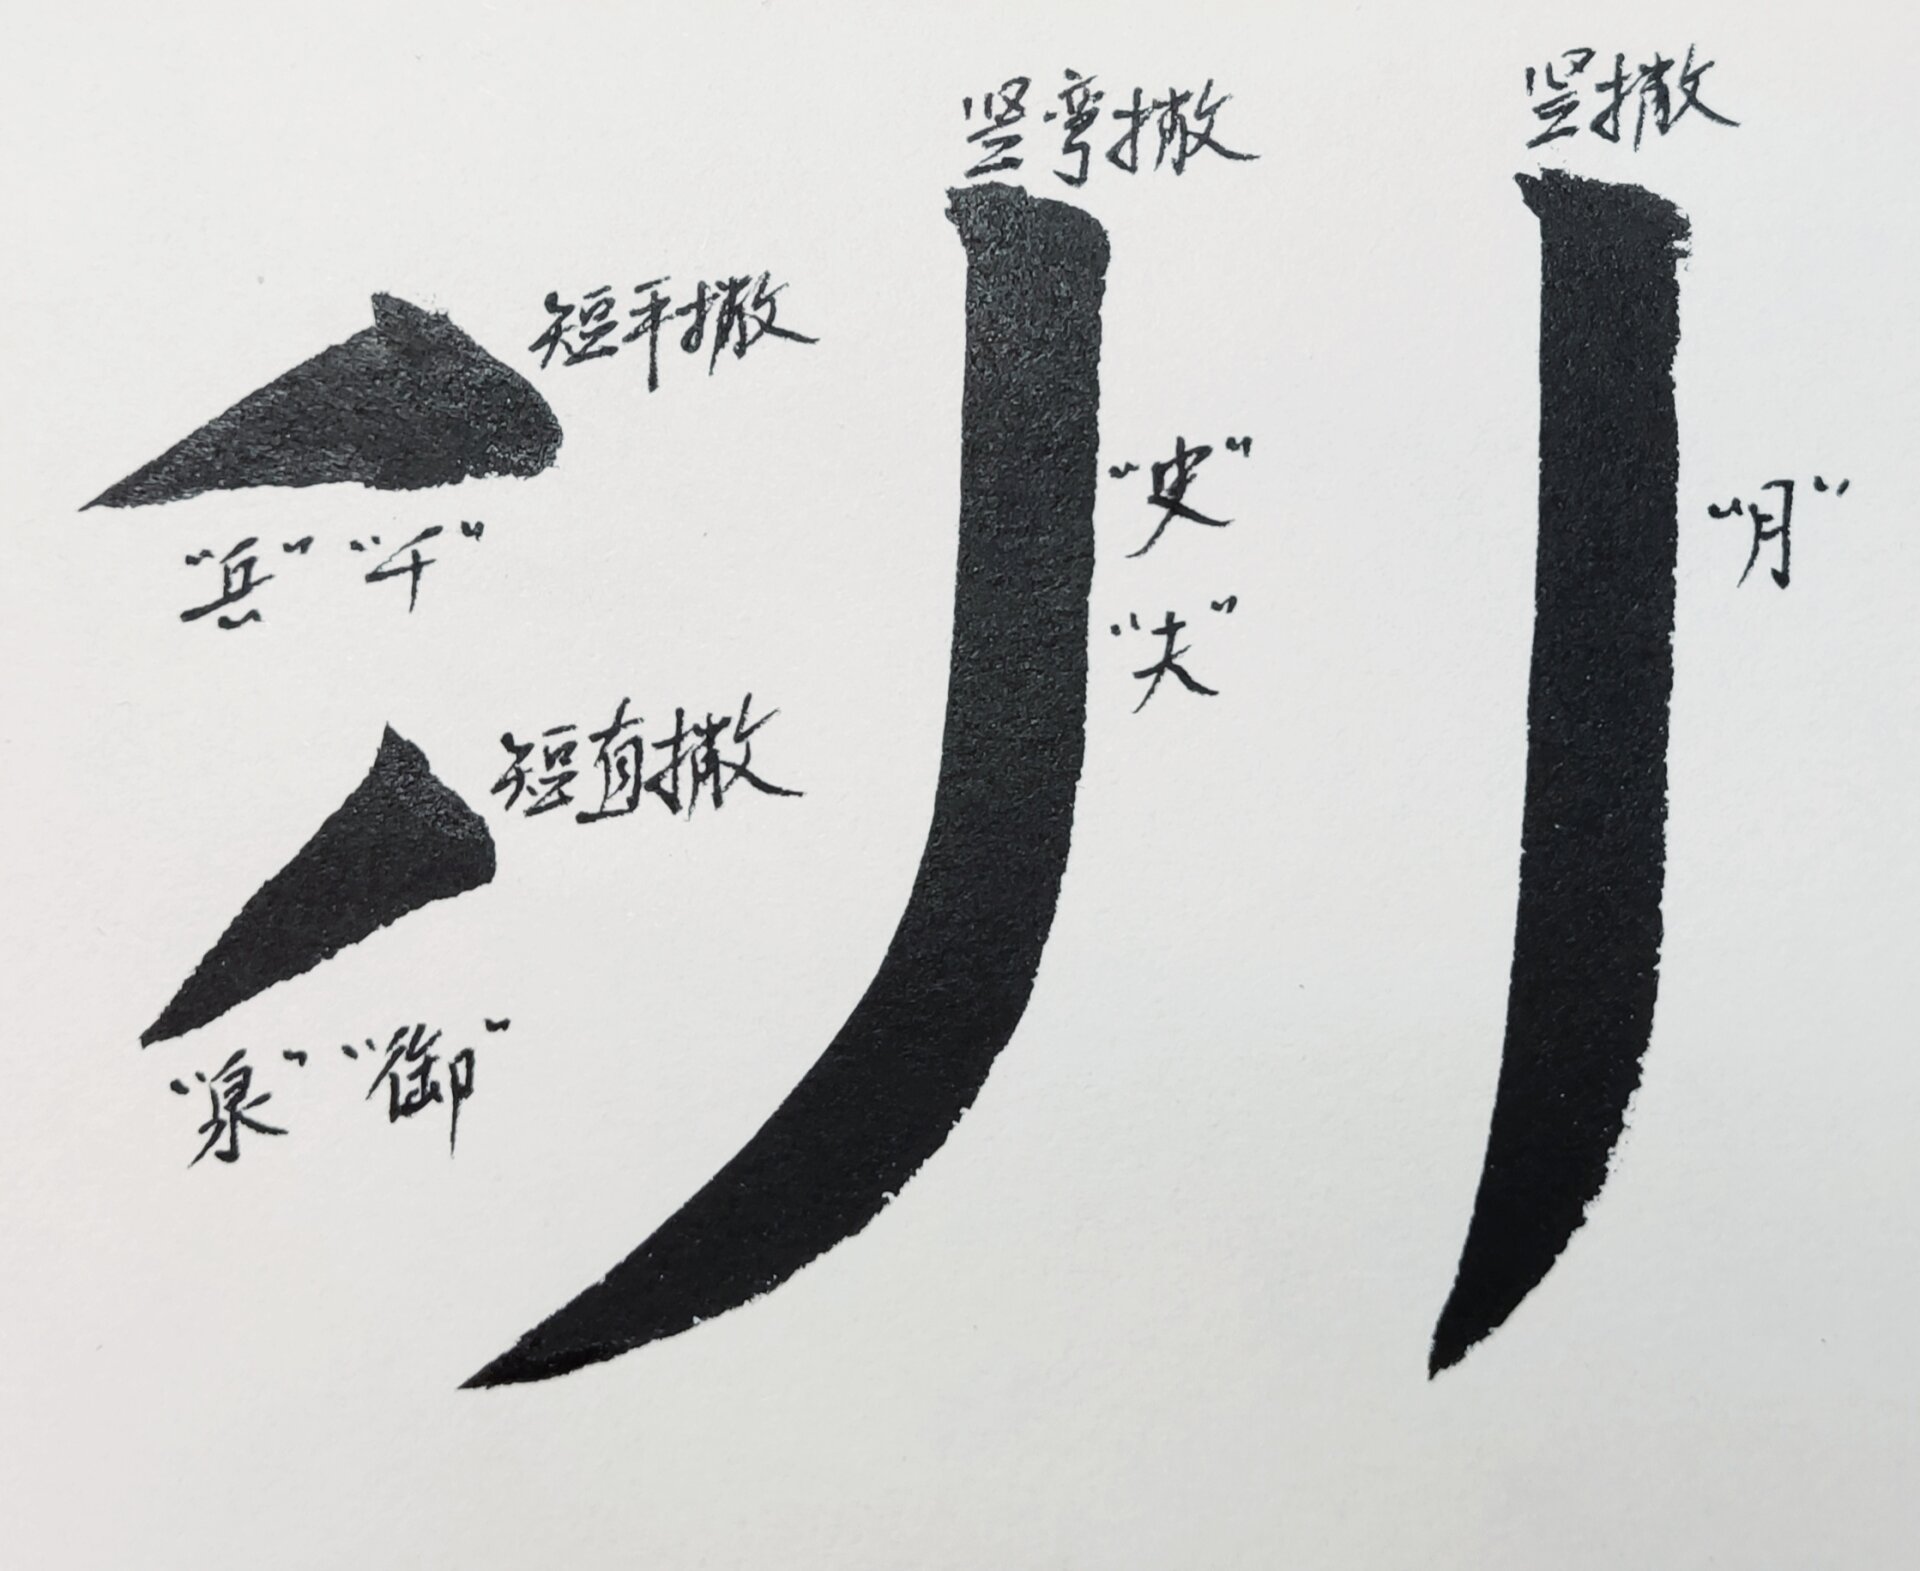 短平撇
“兵” “千”
短直撇
“泉” “御”
竖弯撇
“史”
“夫”
竖撇
“月”